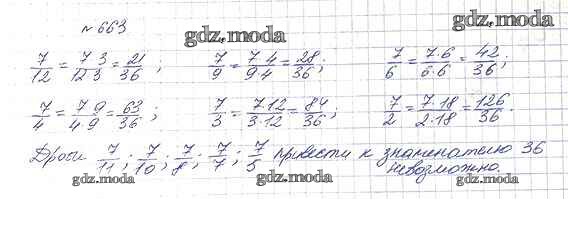 №663
gdz.moda
gdz.moda
7/12 = 7·3/12·3 = 21/36 ; 7/9 = 7·4/9·4 = 28/36 ; 7/6 = 7·6/6·6 = 42/36 ;
7/4 = 7·9/4·9 = 63/36 ; 7/3 = 7·12/3·12 = 84/36 ; 7/2 = 7·18/2·18 = 126/36 .
Дроби 7/11 ; 7/10 ; 7/8 ; 7/7 ; 7/5 привести к знаменателю 36
невозможно.
gdz.moda
gdz.moda
gdz.moda